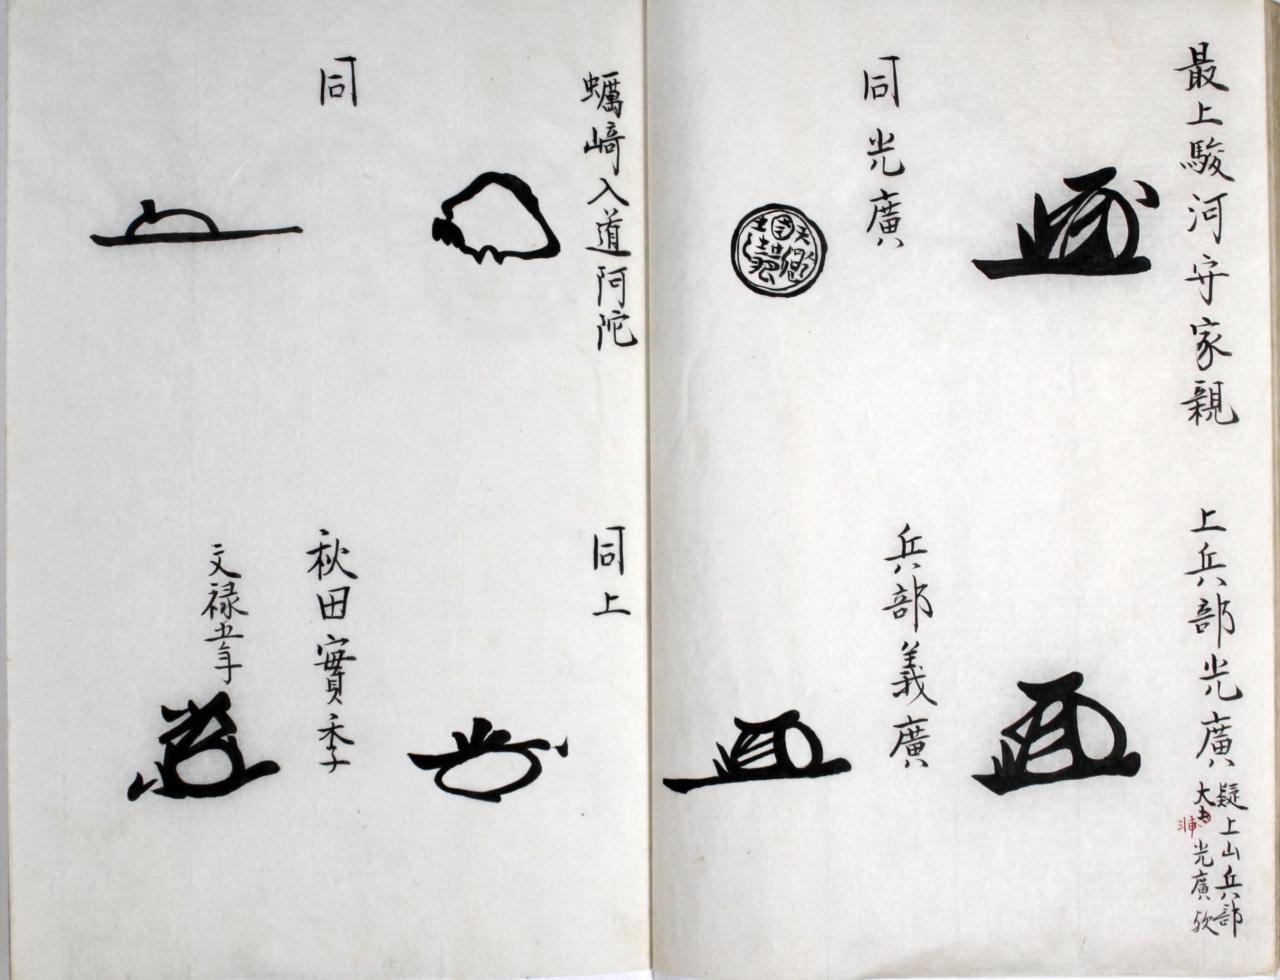 最上駿河守家親
上兵部光廣
疑上山兵部
大浦光廣欤
同光廣
兵部義廣
蠣﨑入道阿陀
同上
同
秋田實季
文禄五年